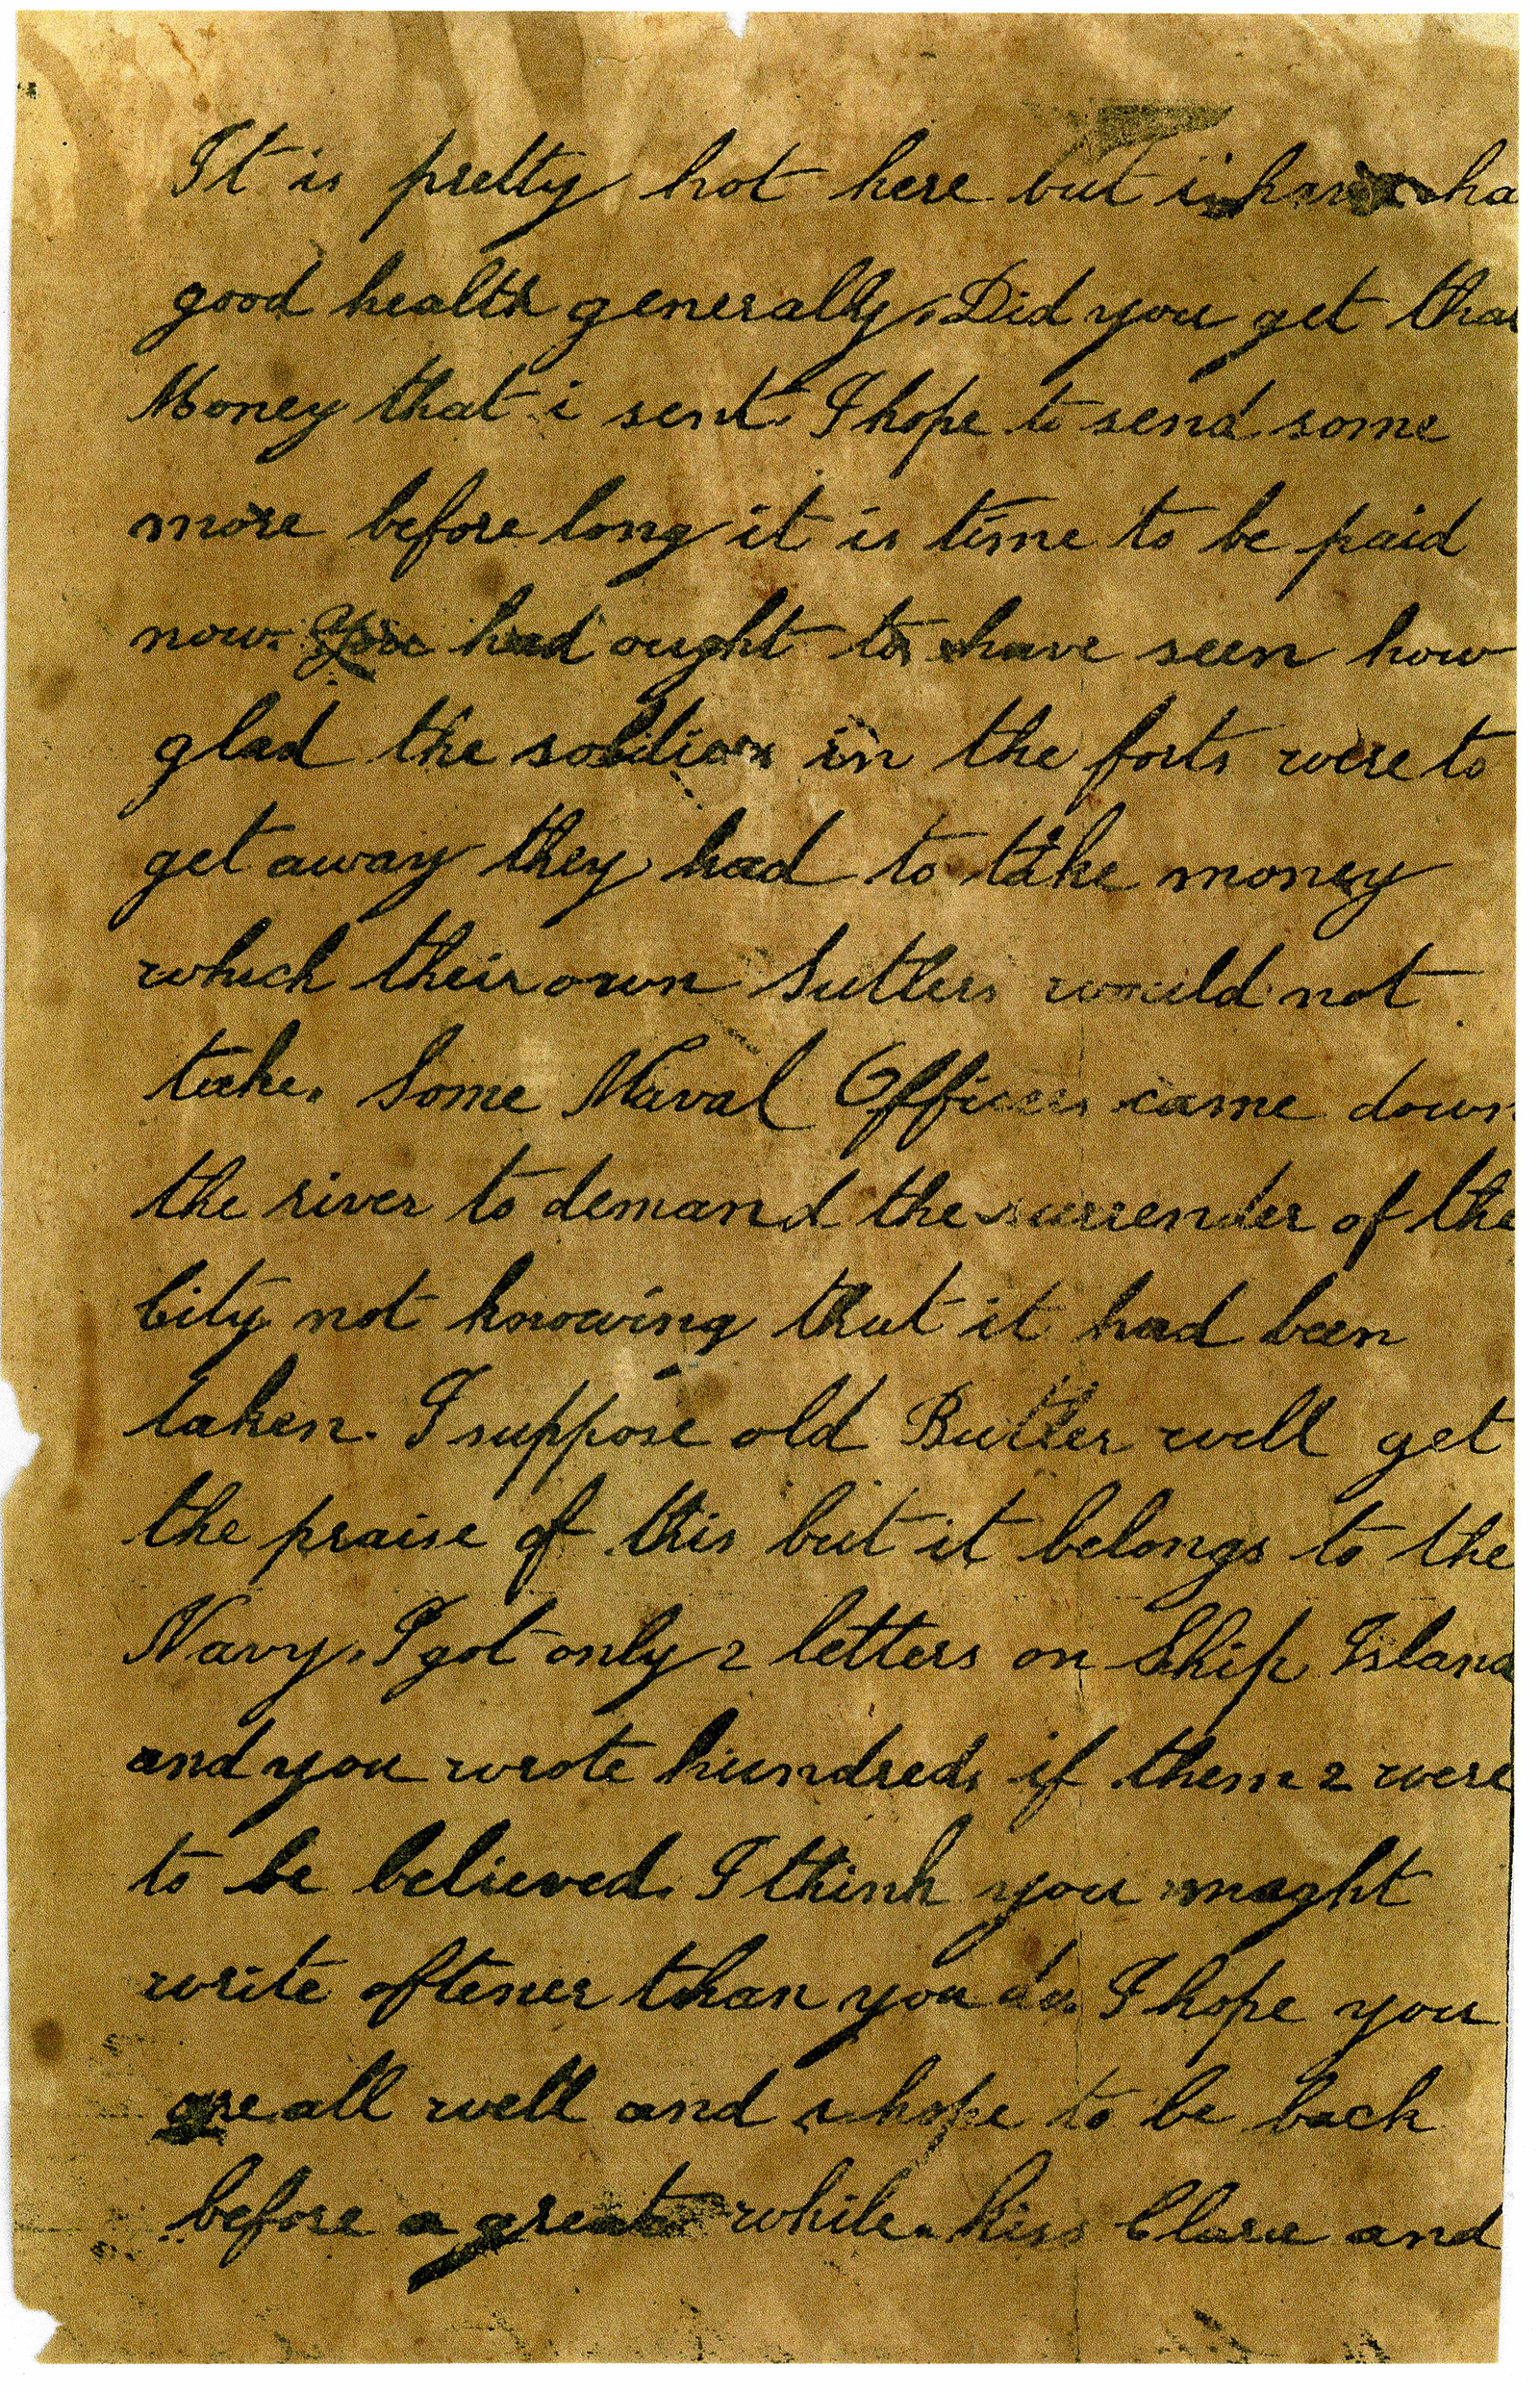 It is pretty hot here but i have ha
good health generally. Did you get that
Money that i sent. I hope to send some
more before long it is time to be paid
now. You had ought to have seen how
glad the soldiers in the forts were to
get away they had to take money
which their own Sutlers would not
take. Some Naval Officers came down
the river to demand the surrender of the
City not knowing that it had been
taken. I suppose old Butler will get
the praise of this but it belongs to the
Navy. I got only 2 letters on Ship Island
and you wrote hundreds if them 2 were
to be believed. I think you might
write oftener than you do. I hope you
are all well and i hope to be back
before a great while. kiss Clara and